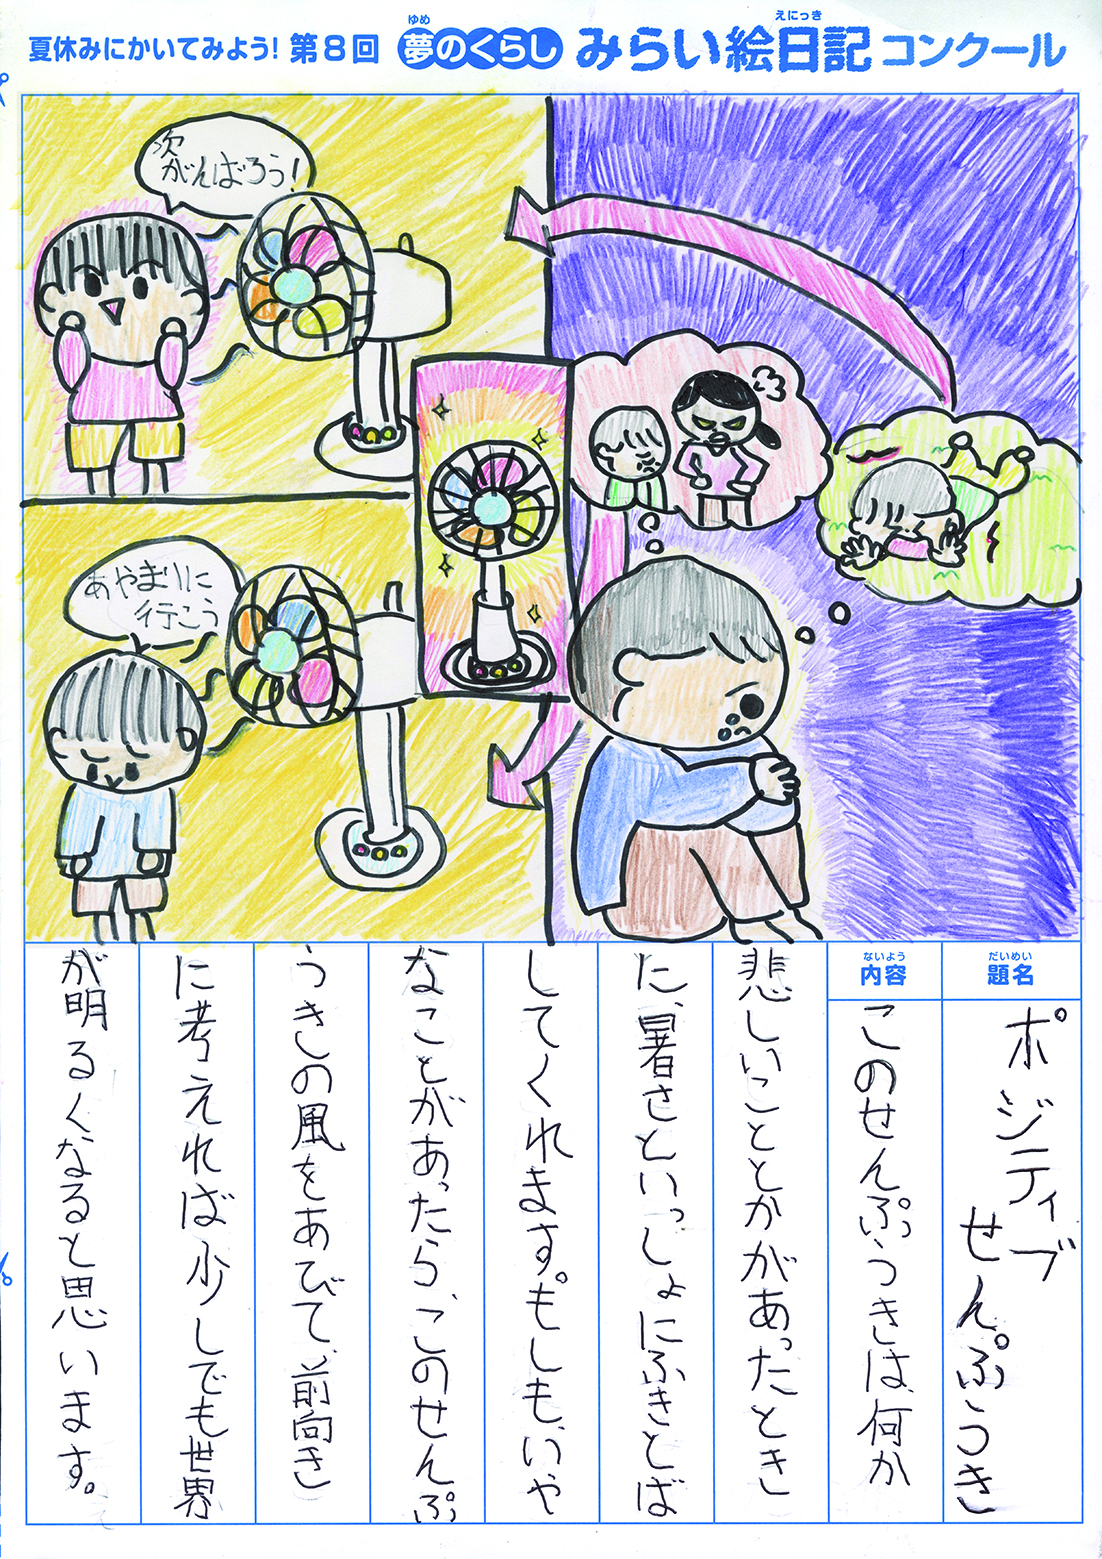 夏休みにかいてみよう! 第8回 夢のくらし みらい絵日記 コンクール
ゆめ
えにっき
次
がんばろう!
あやまりに、
行こう
だいめい
題名
ポジティブ
せんぷうき
ないよう
内容
このせんぷうきは、何か
悲しいこととかがあったとき
に、暑さといっしょにふきとば
してくれます。もしも、いや
なことがあったら、このせんぷ
うきの風をあびて、前向き
に考えれば少しでも世界
が明るくなると思います。